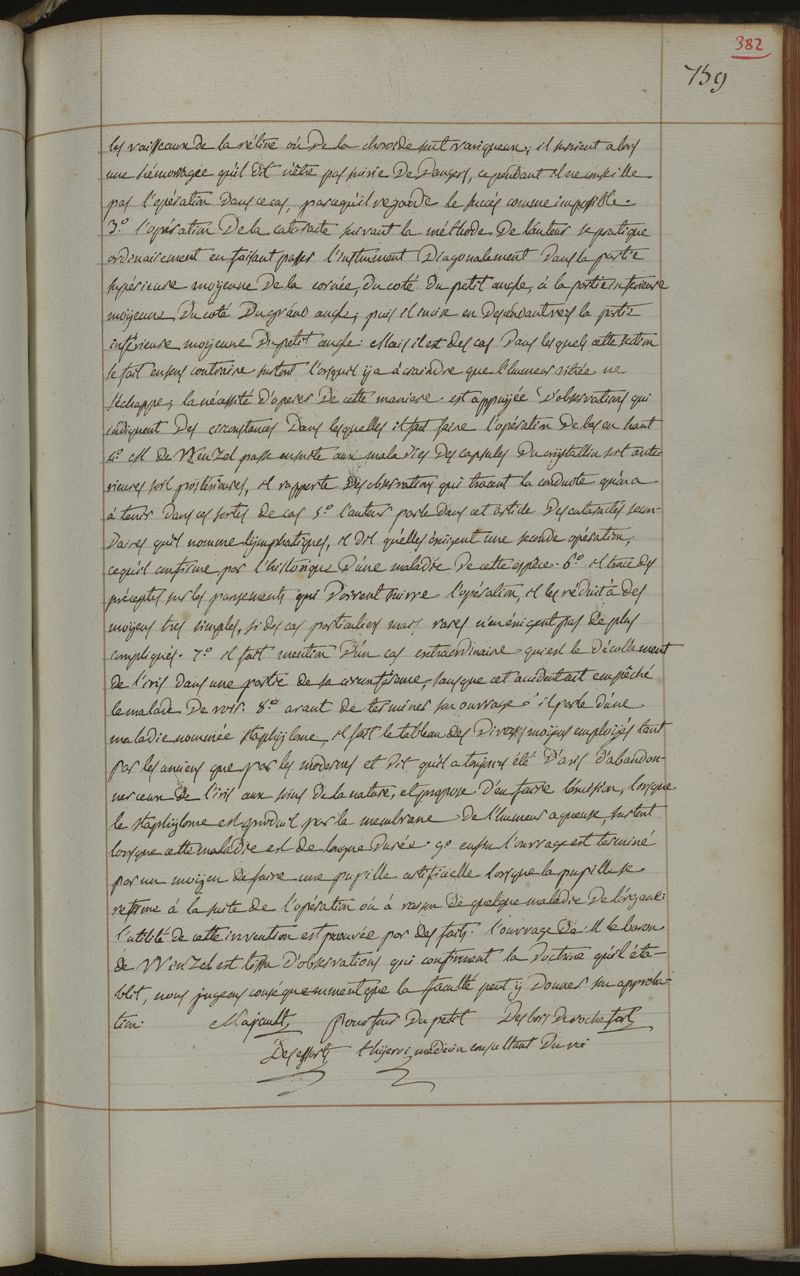 382
759
les vaisseaux de la rétine ou de la choroide sont variqueux; il survient alors
une hémorragie qu'il dit n'être pas suivie de dangers, cependant il ne conseille
pas l'opération dans ce cas, parcequ'il regarde le succès comme impossible.
3.º l'opération de la cataracte suivant la méthode de l'auteur se pratique
ordinairement en faisant passer l'instrument diagonalement dans la partie
supérieure moyenne de la cornée, du coté du petit angle, à la partie inferieure
moyenne du coté du grand angle; puis il incise en descendant vers la partie
inférieure moijenne du petit angle. Mais il est des cas dans lesquels cette section
se fait en sens contraire surtout lorsquil ÿ a à craindre que l'humeur vitrée ne
s'échappe; la nécéssité d'operer de cette maniere est appuyée d'observations qui
indiquent des circonstances dans lesquelles il faut faire l'opération de bas en haut
4.º M. de Wenzel passe ensuite aux maladies des capsules du crystallin soit anté-
rieures soit postérieures, il rapporte des observations qui tracent la conduite qu'on a
à tenir dans ces sortes de cas 5.º l'auteur parle dans cet article des cataractes secon-
daires qu'il nomme lymphatiques, il dit qu'elles éxigent une seconde opération,
ce qu'il confirme par l'historique d'une maladie de cette espèce. 6.º il trace des
préceptes sur les pansements qui doivent suivre l'opération, il les réduit à des
moijens tres simples, si des cas particuliers mais rares n'en éxigent pas de plus
compliqués. 7.º il fait mention d'un cas extraordinaire qui est le décollement
de l'iris dans une partie de sa circonférence, sans que cet accident ait empêché
le malade de voir. 8.º avant de terminer son ouvrage il parle d'une
maladie nommée staphijlome, il fait le tableau des divers moijens emploijés tant
par les anciens que par les modernes et dit qu'il a toujours été d'avis d'abandon-
ner ceux de l'iris aux soins de la nature, et propose d'en faire l'émission, lorsque
le staphijlome est produit par la membrane de l'humeur aqueuse, surtout
lorsque cette maladie est de longue durée. 9º enfin l'ouvrage est terminé
par un moijen de faire une pupille artificielle lorsque la pupille se
referme à la suite de l'opération ou à raison de quelque maladie de l'organe:
l'utilité de cette invention est prouvée par des faits. l'ouvrage de M. le baron
de Wenzel est tissu d'observations qui confirment la doctrine qu'il éta-
blit, nous jugeons conséquemment que la faculté peut ÿ donner son approba-
tion. Majault, Pourfour du petit Desbois de rochefort
Desessartz thierri médecin consultant du roi